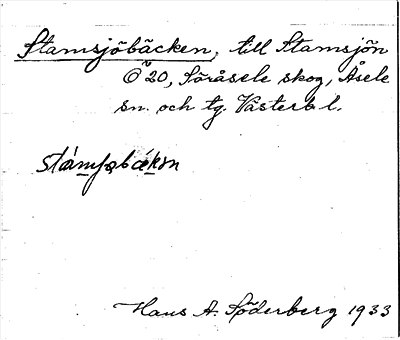 Stamsjöbäcken, till Stamsjön
Ö 20, Söråsele skog, Åsele
sn. och tg. Västerb l.
Hans A. Söderberg 1933